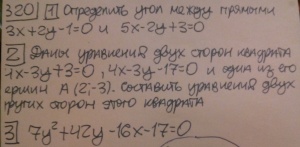 320 1 Определить угол между прямыми
3x+2y-1=0 и 5x-2y+3=0
2 Даны уравнения двух сторон квадрата
4x-3y+3=0, 4x-3y-17=0 и одна из его
ершин A (2;-3). Составить уравнения двух
ругих сторон этого квадрата
3 7y²+42y-16x-17=0